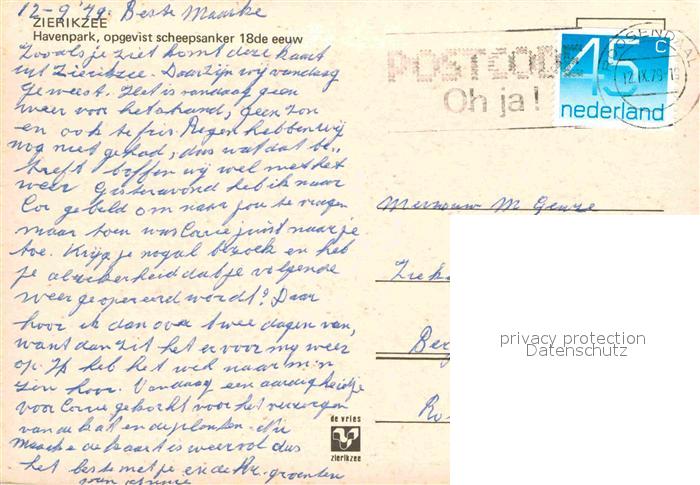 12-9'79. Beste Maatke
ZIERIKZEE
Havenpark, opgevist scheepsanker 18de eeuw
Zooals je ziet komt deze kaart
uit Zierikzee. Daar zijn wij vandaag
geweest. Het is vandaag geen
weer voor het strand, geen zon
en ook te fris. Regen hebben wij
nog niet gehad, dus wat dat be„
treft boffen wij wel met het
weer Gisteravond heb ik naar
Cor gebeld om naar jou te vragen
maar toen was Corrie juist naar je
toe. Krijg je nogal bezoek en heb
je al zekerheid dat je volgende
weer geopereerd wordt? Daar
hoor ik dan over twee dagen van,
want dan zit het er voor mij weer
op. Ik heb het wel naar m'n
zin hoor. Vandaag een aardigheidje
voor Corrie gekocht voor het verzorgen
van de kat en de planten. Nu
de kaart is weer vol dus
het beste met je en de groeten
van
POSTCODE
Oh ja!
ROSENDAAL
12.IX.79-19
45 c
nederland
Mevrouw M Geuze
Zieke
Berg
Ro
privacy protection
Datenschutz
de vries
zierikzee